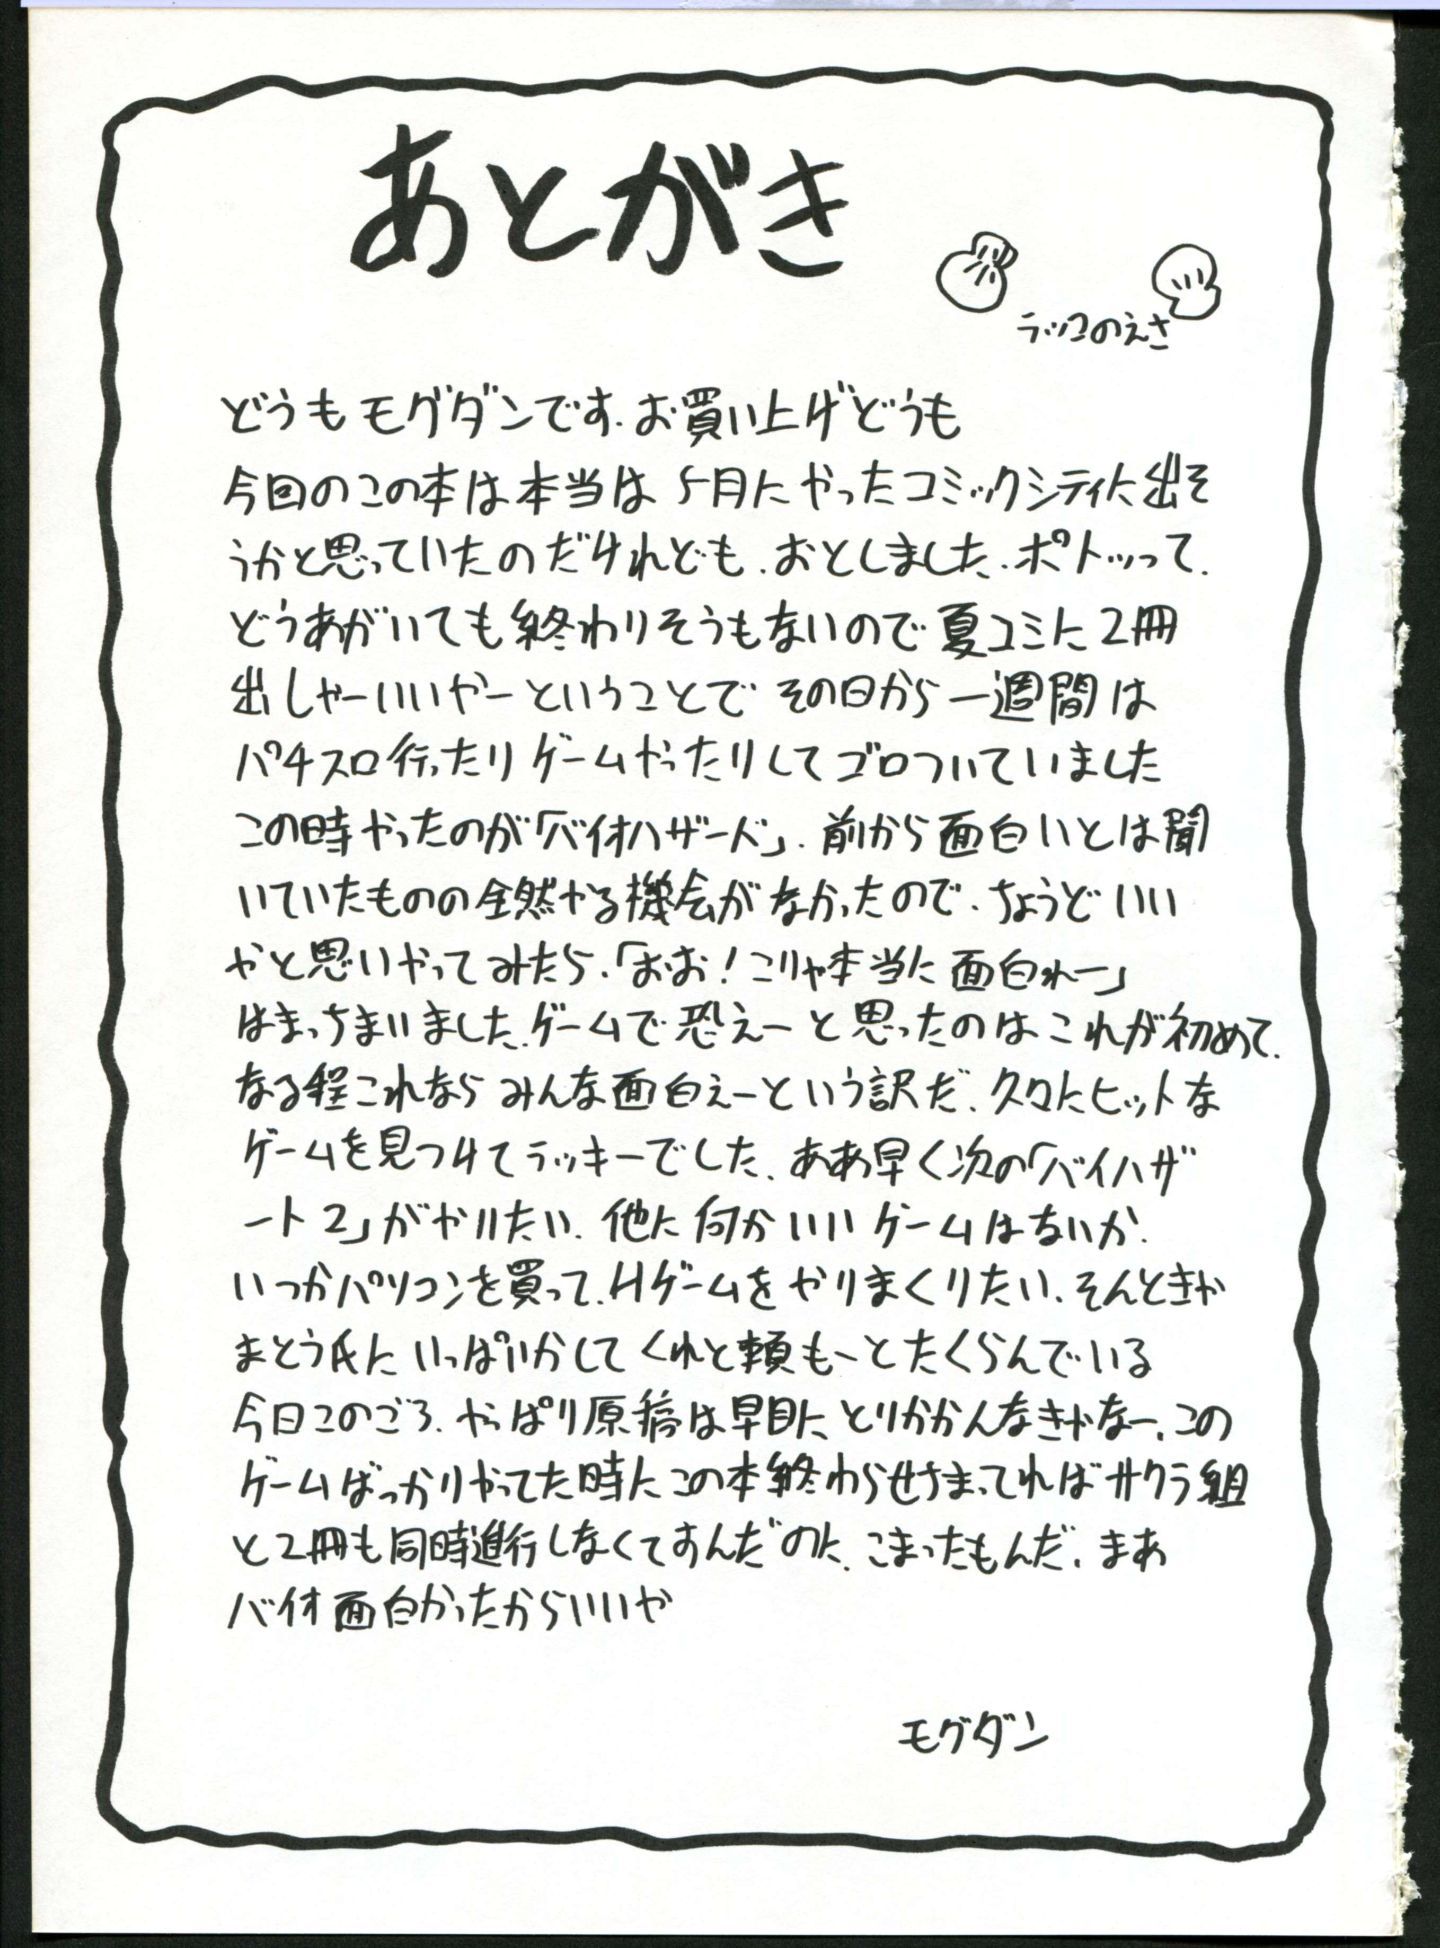 あとがき
ラッコのえさ
どうもモグダンです.お買い上げどうも
今回のこの本は本当は5月にやったコミックシティに出そ
うかと思っていたのだけれども、おとしました、ポトッって.
どうあがいても終わりそうもないので夏コミに2冊
出しゃーいいやーということでその日から一週間は
パチスロ行ったりゲームやったりしてゴロついていました
この時やったのが「バイオハザード」、前から面白いとは聞
いていたものの全然やる機会がなかったので、ちょうどいい
やと思いやってみたら、「おお!こりゃ本当に面白れー」
はまっちまいました.ゲームで恐えーと思ったのはこれが初めて.
なる程これならみんな面白えーという訳だ、久々にヒットな
ゲームを見つけてラッキーでした、ああ早く次の「バイハザ
ード2」がやりたい、他に何かいいゲームはないか.
いつかパソコンを買って、Hゲームをやりまくりたい、そんときゃ
まとう氏にいっぱいかしてくれと頼もーとたくらんでいる
今日このごろ、やっぱり原稿は早目にとりかかんなきゃなー、この
ゲームばっかりやってた時にこの本終わらせさまってればサクラ組
と2冊も同時進行しなくてすんだのに、こまったもんだ、まあ
バイオ面白かったからいいや
モグダン